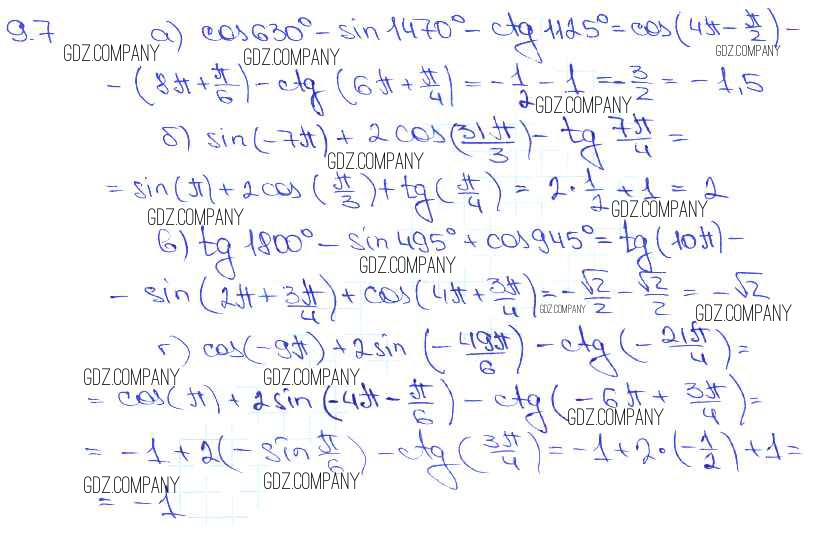 9.7 а) cos 630° - sin 1470° - ctg 1125° = cos(4π - π/2) -
GDZ.COMPANY GDZ.COMPANY GDZ.COMPANY
- (8π + π/6) - ctg (6π + π/4) = -1/2 - 1 = -3/2 = -1,5
GDZ.COMPANY
б) sin(-7π) + 2cos(31π/3) - tg 7π/4 =
GDZ.COMPANY
= sin(π) + 2cos(π/3) + tg(π/4) = 2·1/2 + 1 = 2
GDZ.COMPANY GDZ.COMPANY
в) tg 1800° - sin 495° + cos 945° = tg(10π) -
GDZ.COMPANY
- sin(2π + 3π/4) + cos(4π + 3π/4) = -√2/2 - √2/2 = -√2
GDZ.COMPANY GDZ.COMPANY
г) cos(-9π) + 2sin(-49π/6) - ctg(-21π/4) =
GDZ.COMPANY GDZ.COMPANY
= cos(π) + 2sin(-4π - π/6) - ctg(-6π + 3π/4) =
GDZ.COMPANY
= -1 + 2(-sin π/6) - ctg(3π/4) = -1 + 2·(-1/2) + 1 =
GDZ.COMPANY GDZ.COMPANY
= -1